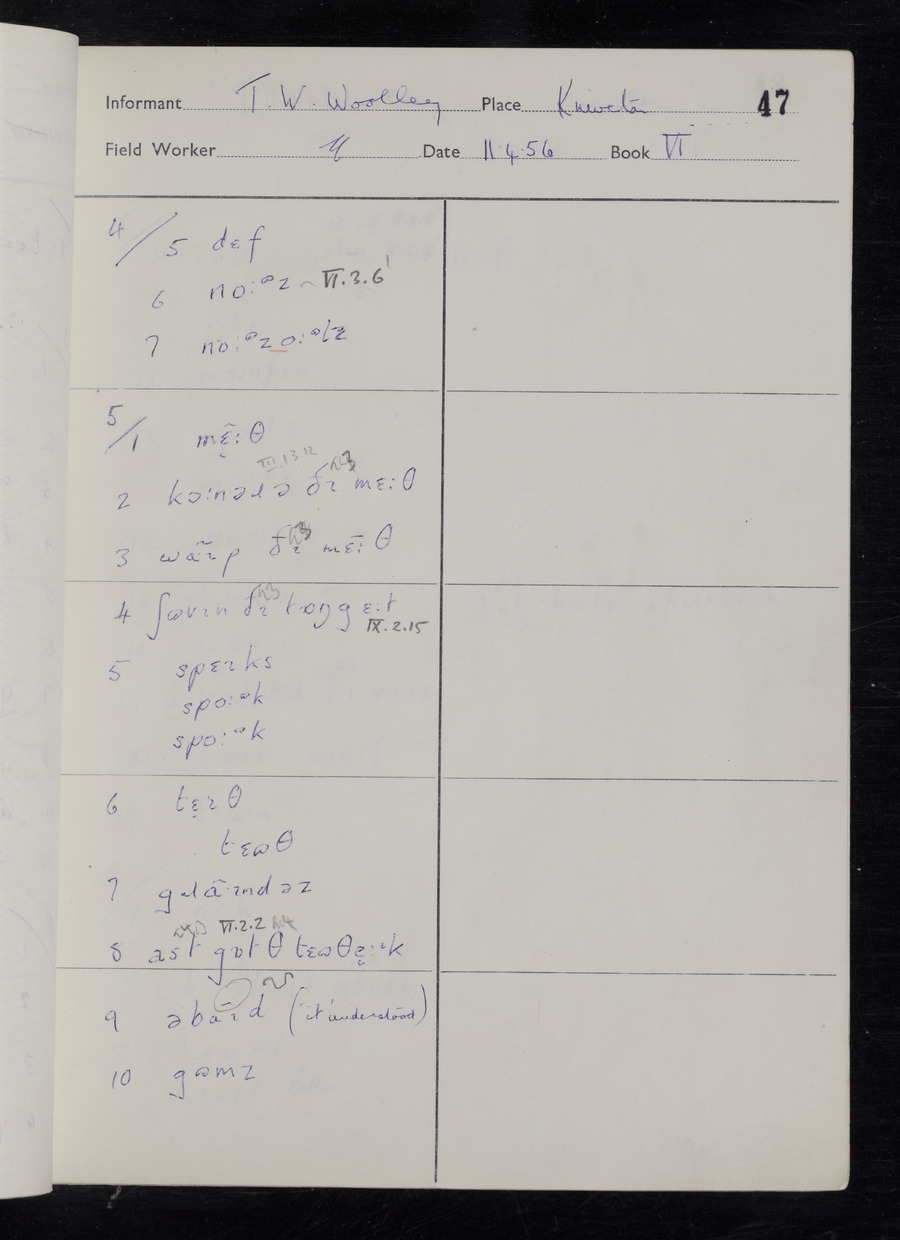 Informant T. W. Woolley Place Kniveton 47
Field Worker Date 11.4.56 Book VI
4/5 dɛf
6 nɒːᵊz ~ VI.3.6
7 nɒːᵊzɒːᵊlz
5/1 mɛ̣̄ːθ
2 kɔːnəɹə ðɪ mɛːθ
III.13.12
3 wãːɪp ðɪ mɛ̄ːθ
4 ʃɷvɪn ðɪ tɒŋg ɛːt
IX.2.15
5 spɛɪks
spɒːᵊk
spɒːᵊk
6 tɛ̣ɪθ
tɛɷθ
7 gɹãːɪndəz
VI.2.2
8 ast gɒt θ tɛɷθẹːɪk
9 əbaːɪd ('it' understood)
10 gɷmz